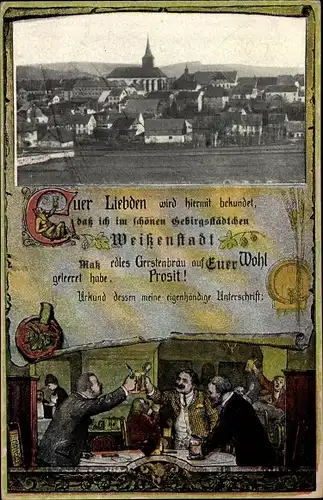 Euer Liebden wird hiermit bekundet,
daß ich im schönen Gebirgsstädtchen
Weißenstadt
Maß edles Gerstenbräu auf Euer Wohl
geleeret habe. Prosit!
Urkund dessen meine eigenhändige Unterschrift: